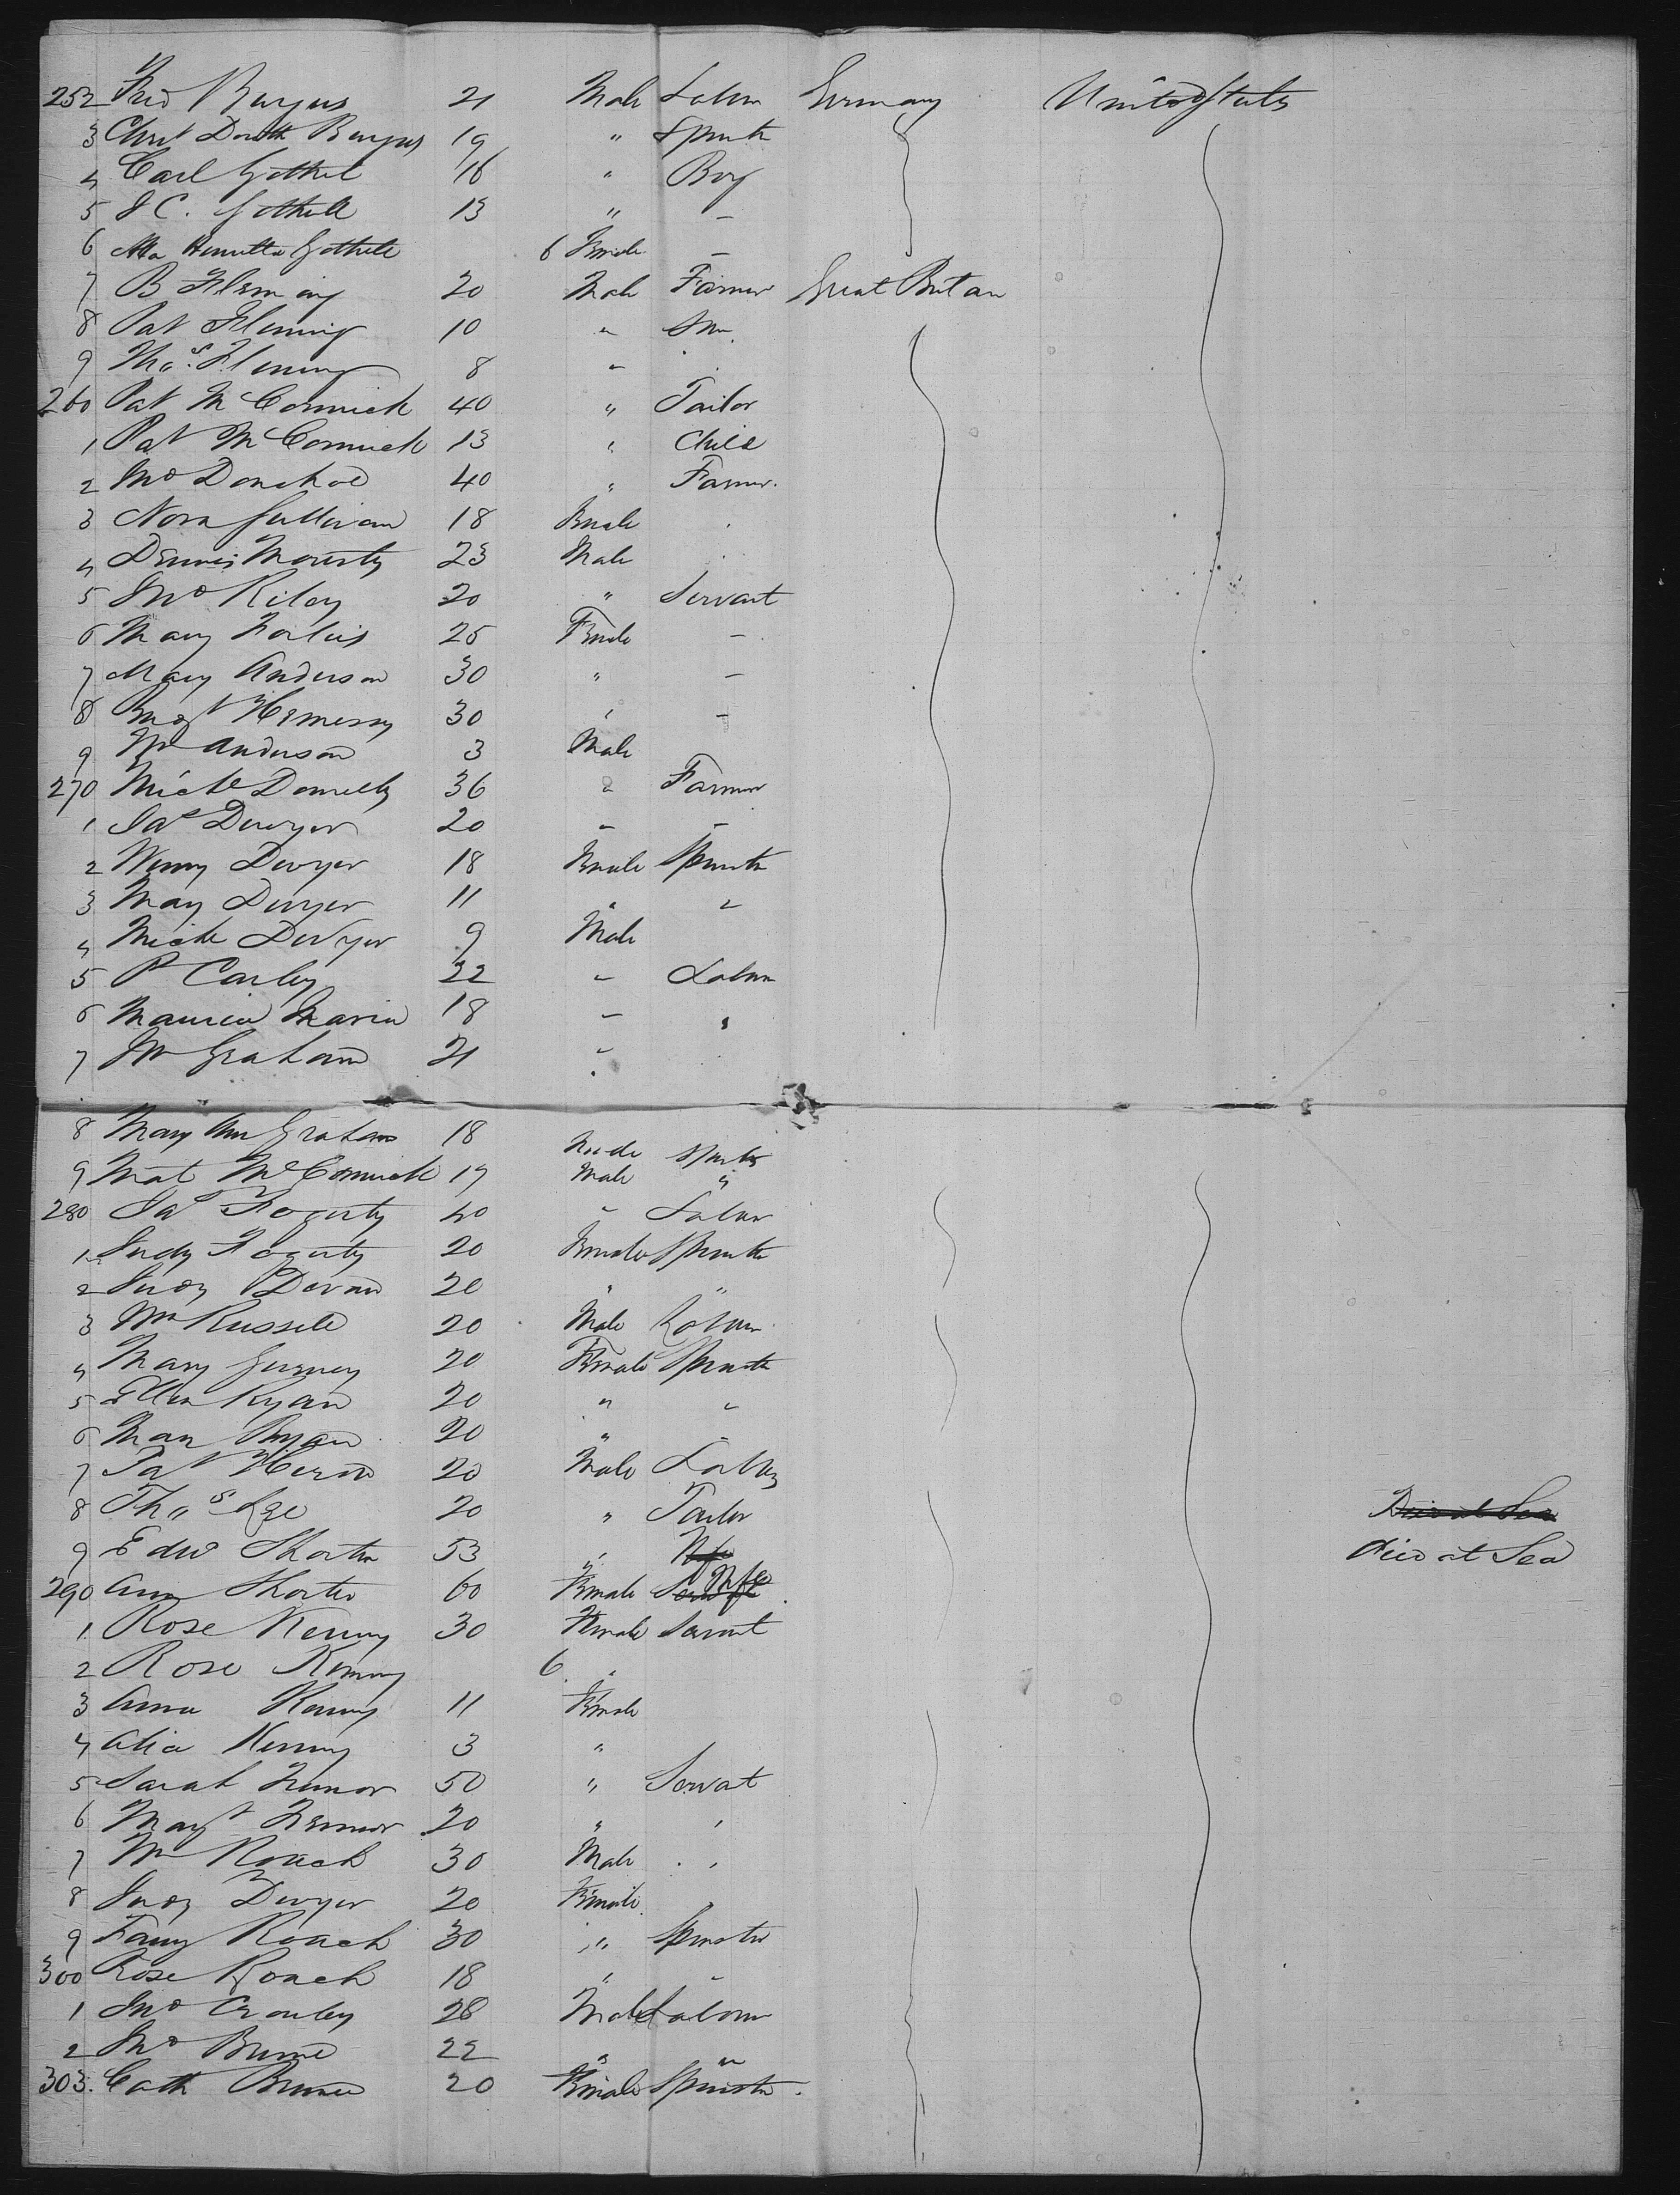 252 Fred Burgus 21 Male Labor Germany United States
3 Christ Doroth Burgus 19 " Spinster
4 Carl Gothel 16 " Boy
5 J C. Gothell 13 " —
6 Ma Henrietta Gothell 6 Female —
7 B Fleming 20 Male Farmer Great Britan
8 Pat Fleming 10 " Son
9 Thos. Fleming 8 "
260 Pat McCormick 40 " Tailor
1 Pat McCormick 13 " Child
2 Jno Donohoe 40 " Farmer
3 Nora Sullivan 18 Female
4 Dennis Moriarty 23 Male
5 Jno Riley 20 " Servant
6 Mary 25 Female —
7 Mary Anderson 30 " —
8 Hennessy 30 " —
9 Wm Anderson 3 Male
270 Michl Donnelly 36 " Farmer
1 Jas Dwyer 20 " —
2 Winny Dwyer 18 Female Spinster
3 Mary Dwyer 11 " "
4 Michl Dwyer 9 Male
5 P Carley 22 " Labor
6 Maurice 18 " "
7 Wm Graham 21 "
8 Mary Ann Graham 18 Female Spinster
9 Mat McCormick 19 Male "
280 Jas Fogerty 40 " Labor
1 Judy Fogerty 20 Female Spinster
2 Judy 20 " "
3 Wm Russell 20 Male Labor
4 Mary 20 Female Spinster
5 Ellen Ryan 20 " "
6 Mary Ryan 20 " "
7 Pat 20 Male Labor
8 Thos Lee 20 " Tailor Died at Sea
9 Edwd Shorter 53 " Wife died at Sea
290 Ann Shorter 60 Female Servant Wife
1 Rose Kenny 30 Female Servant
2 Rose Kenny 6 "
3 Anna Kenny 11 Female
4 Alice Kenny 3 "
5 Sarah 50 " Servat
6 Magt 20 " "
7 Wm Roach 30 Male "
8 Judy Dwyer 20 Female "
9 Fanny Roach 30 " Spinster
300 Rose Roach 18 " "
1 Jno Crowley 28 Male Labour
2 Jno Burne 22 " "
303. Cath Burne 20 Female Spinster